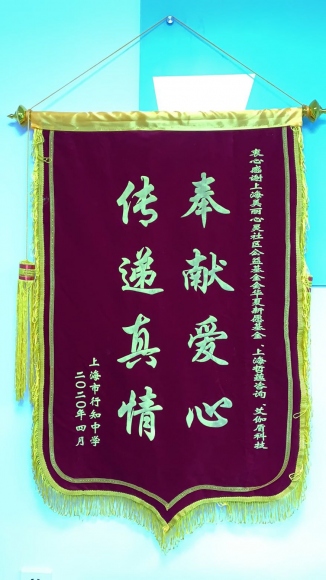 衷心感谢上海美丽心灵社区公益基金会华夏新愿基金、上海哲蕴咨询 艾伽盾科技
奉献爱心
传递真情
上海市行知中学
二〇二〇年四月